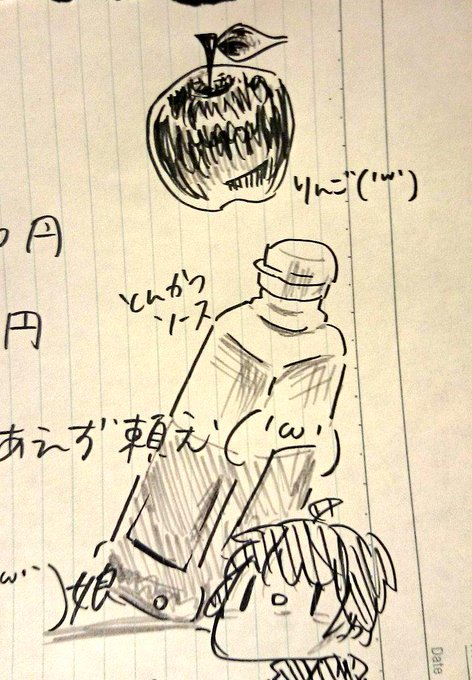 りんご('ω')
円
とんかつ
ソース
円
あえず頼む('ω')
ω')娘
Date